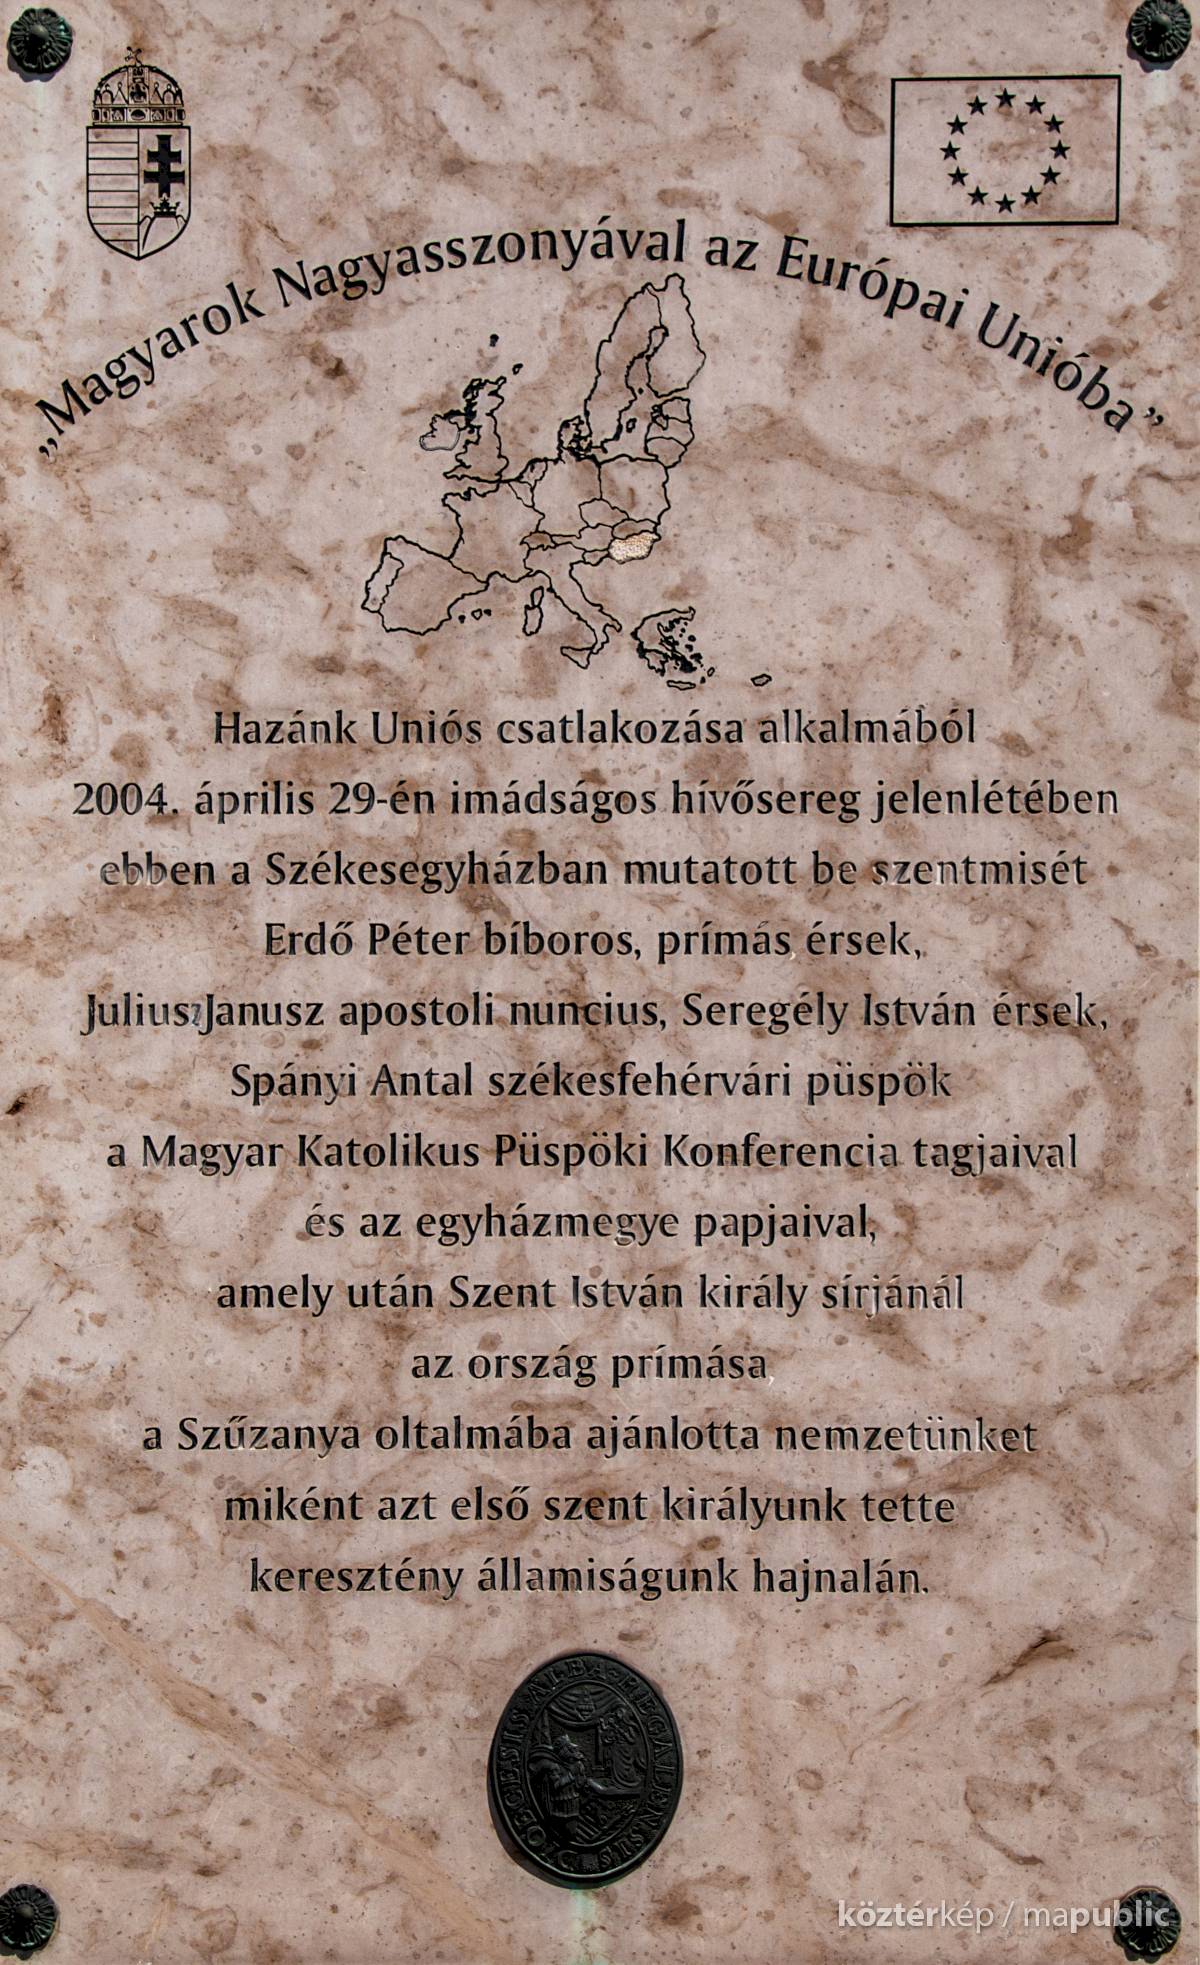 „Magyarok Nagyasszonyával az Európai Unióba”
Hazánk Uniós csatlakozása alkalmából
2004. április 29-én imádságos hívősereg jelenlétében
ebben a Székesegyházban mutatott be szentmisét
Erdő Péter bíboros, prímás érsek,
Juliusz Janusz apostoli nuncius, Seregély István érsek,
Spányi Antal székesfehérvári püspök
a Magyar Katolikus Püspöki Konferencia tagjaival
és az egyházmegye papjaival,
amely után Szent István király sírjánál
az ország prímása
a Szűzanya oltalmába ajánlotta nemzetünket
miként azt első szent királyunk tette
keresztény államiságunk hajnalán.
DIOECESIS ALBA REGALENSIS
köztérkép / mapublic